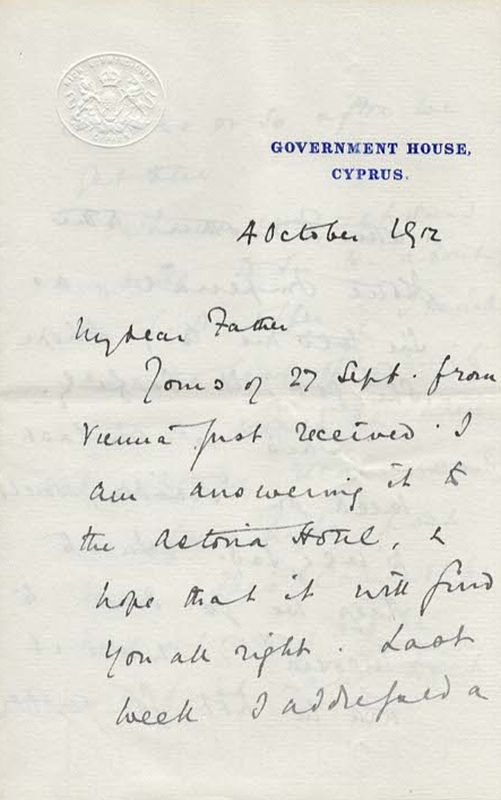 GOVERNMENT HOUSE,
CYPRUS.
4 October 1912
My dear Father
Yours of 27 Sept. from
Vienna just received. I
am answering it to
the Astoria Hotel, &
hope that it will find
you all right. Last
week I addressed a